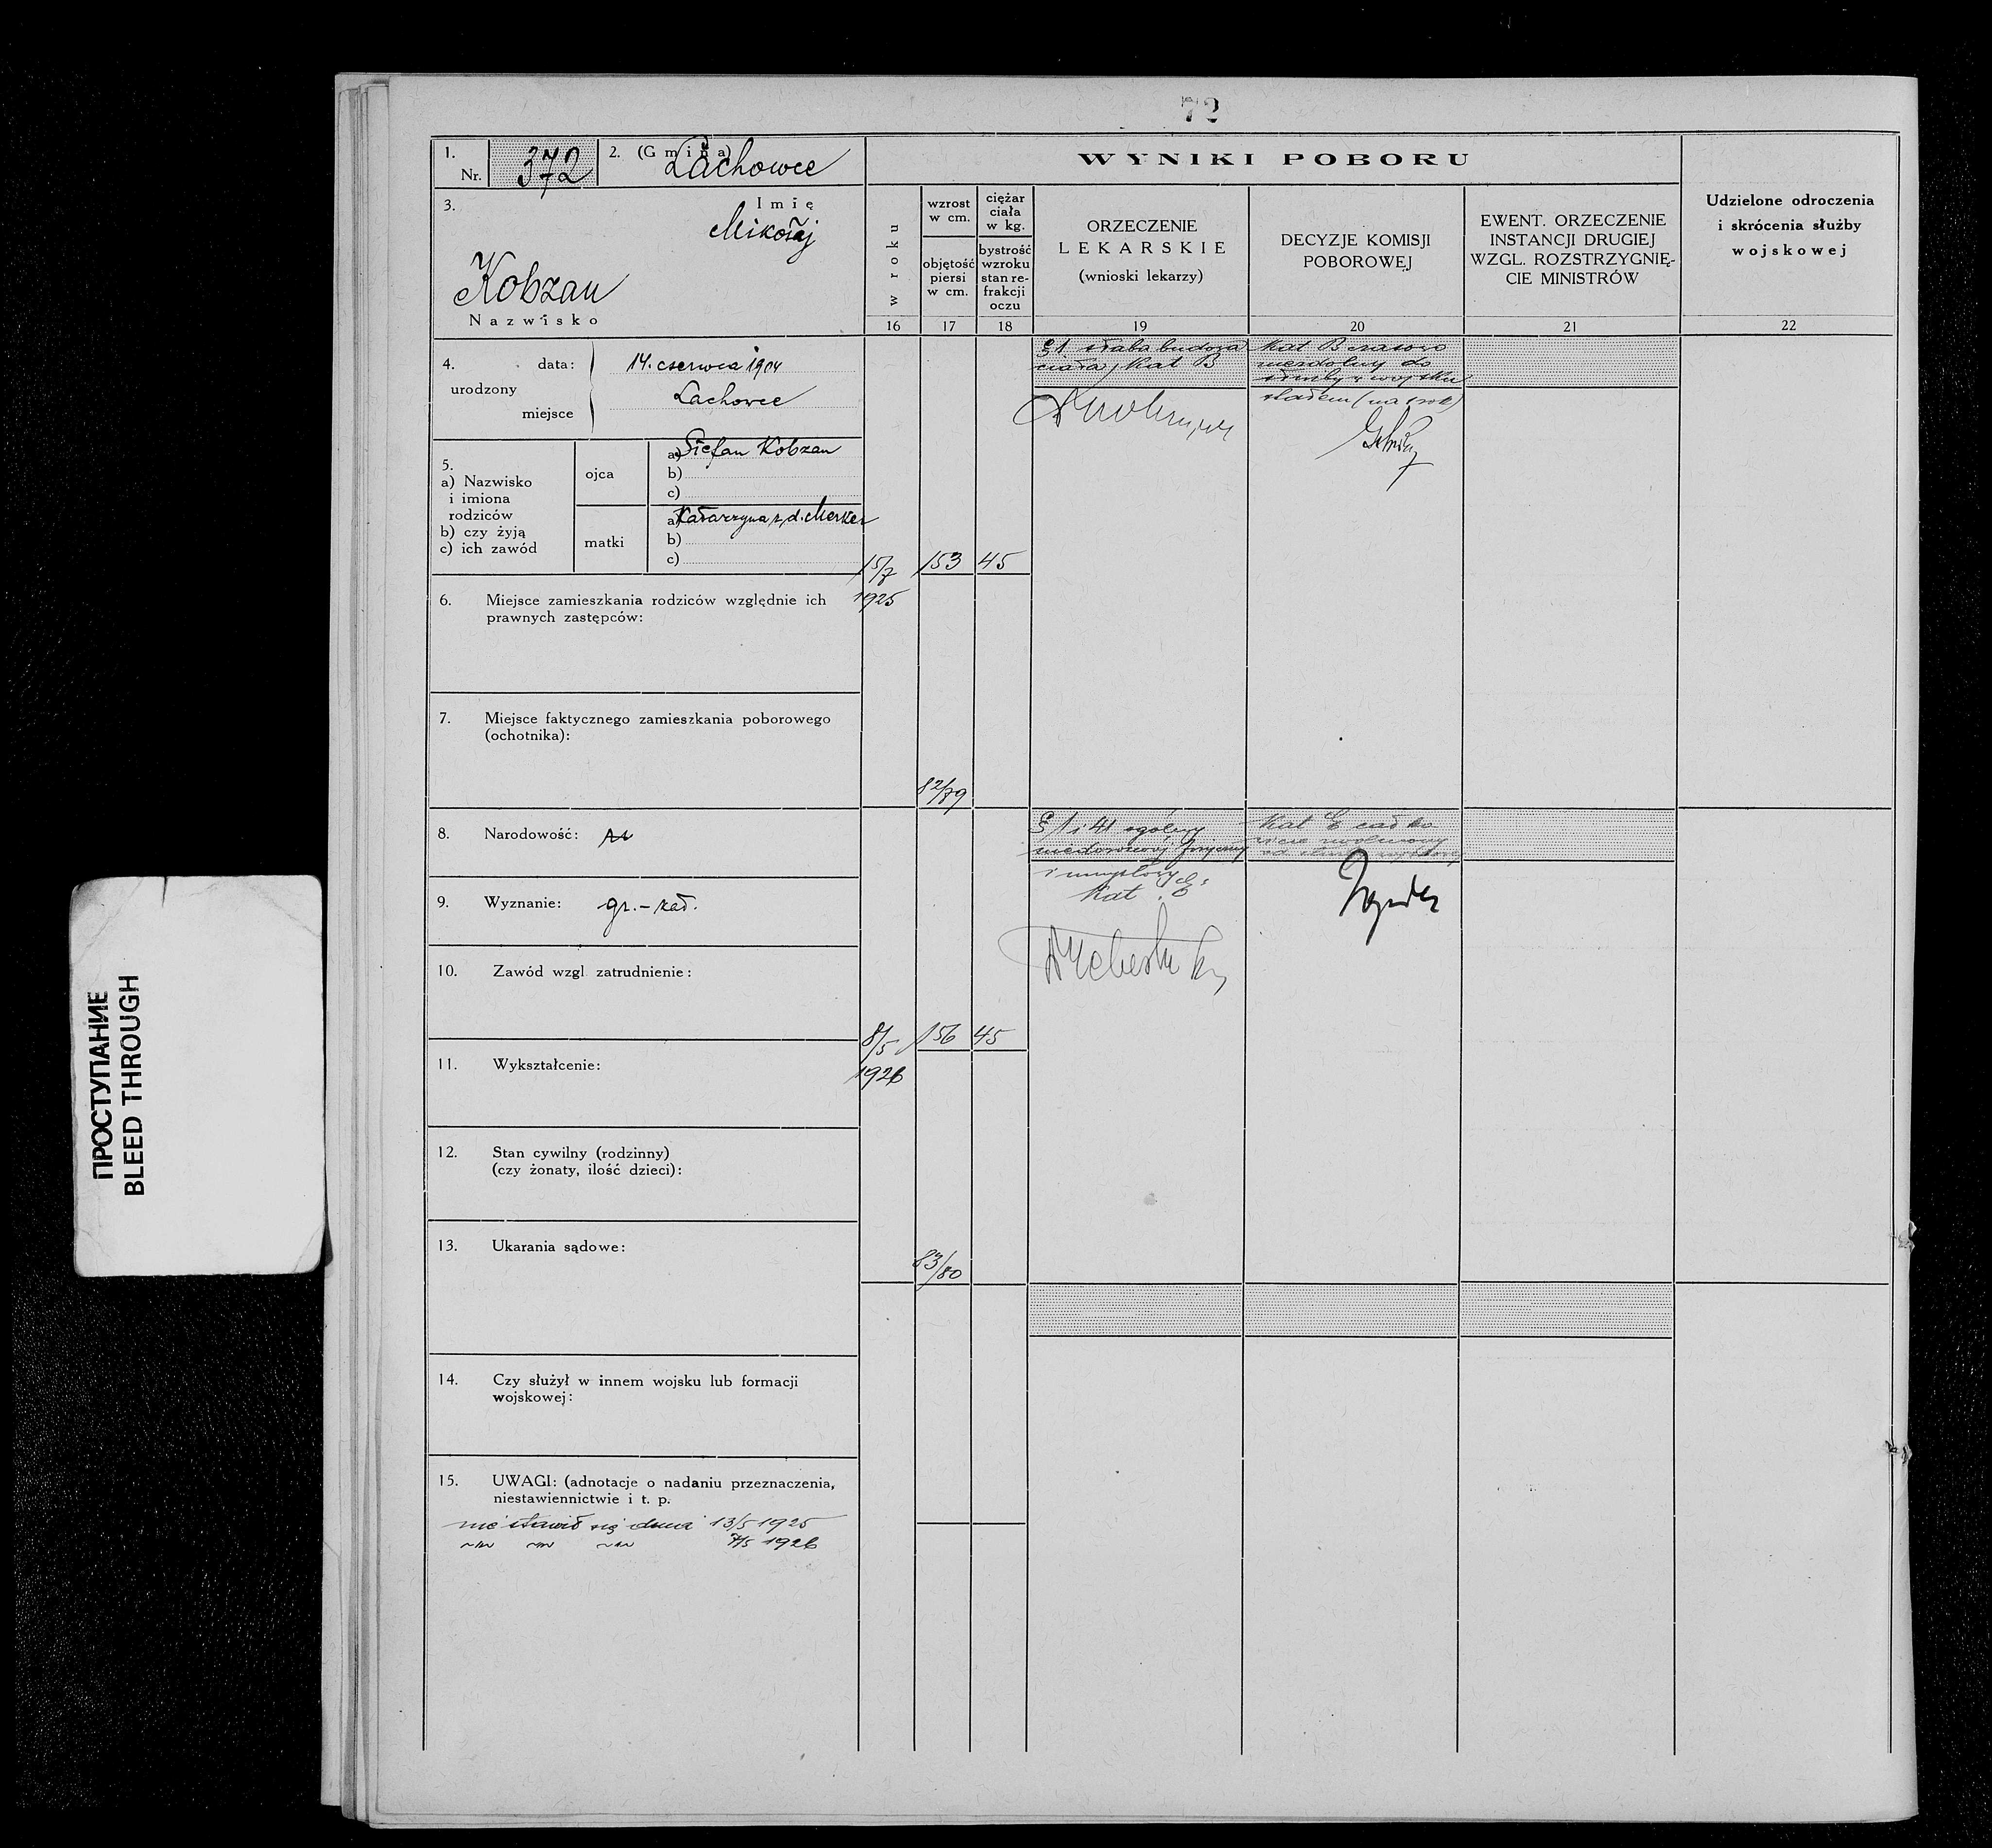 72
1. Nr. 372
2. (Gmina) Lachowce
3. Imię
Mikołaj
Kobzan
Nazwisko
4. urodzony
data: 14. czerwca 1904
miejsce Lachowce
5.
a) Nazwisko
i imiona
rodziców
b) czy żyją
c) ich zawód
ojca
a) Stefan Kobzan
b)
c)
matki
a) Katarzyna z d.
b)
c)
6. Miejsce zamieszkania rodziców względnie ich
prawnych zastępców:
7. Miejsce faktycznego zamieszkania poborowego
(ochotnika):
8. Narodowość:
9. Wyznanie: gr.-kat.
10. Zawód wzgl. zatrudnienie:
11. Wykształcenie:
12. Stan cywilny (rodzinny)
(czy żonaty, ilość dzieci):
13. Ukarania sądowe:
14. Czy służył w innem wojsku lub formacji
wojskowej:
15. UWAGI: (adnotacje o nadaniu przeznaczenia,
niestawiennictwie i t. p.
nie stawił się dnia 13/5 1925
7/5 1926
WYNIKI POBORU
w roku
16
wzrost
w cm.
objętość
piersi
w cm.
17
ciężar
ciała
w kg.
bystrość
wzroku
stan re-
frakcji
oczu
18
ORZECZENIE
LEKARSKIE
(wnioski lekarzy)
19
DECYZJE KOMISJI
POBOROWEJ
20
EWENT. ORZECZENIE
INSTANCJI DRUGIEJ
WZGL. ROZSTRZYGNIĘ-
CIE MINISTRÓW
21
Udzielone odroczenia
i skrócenia służby
wojskowej
22
15/7
1925
153
45
82/79
§ 1. słaba budowa
ciała, Kat B
Kat B czasowo
niezdolny do
służby w wojsku
stałem (na 1 rok)
8/5
1926
156
45
83/80
§ 1 i 41 ogólny
niedorozwój fizyczny
i umysłowy
Kat. "E"
Kat E całko
wicie zwolniony
od służby
ПРОСТУПАНИЕ
BLEED THROUGH